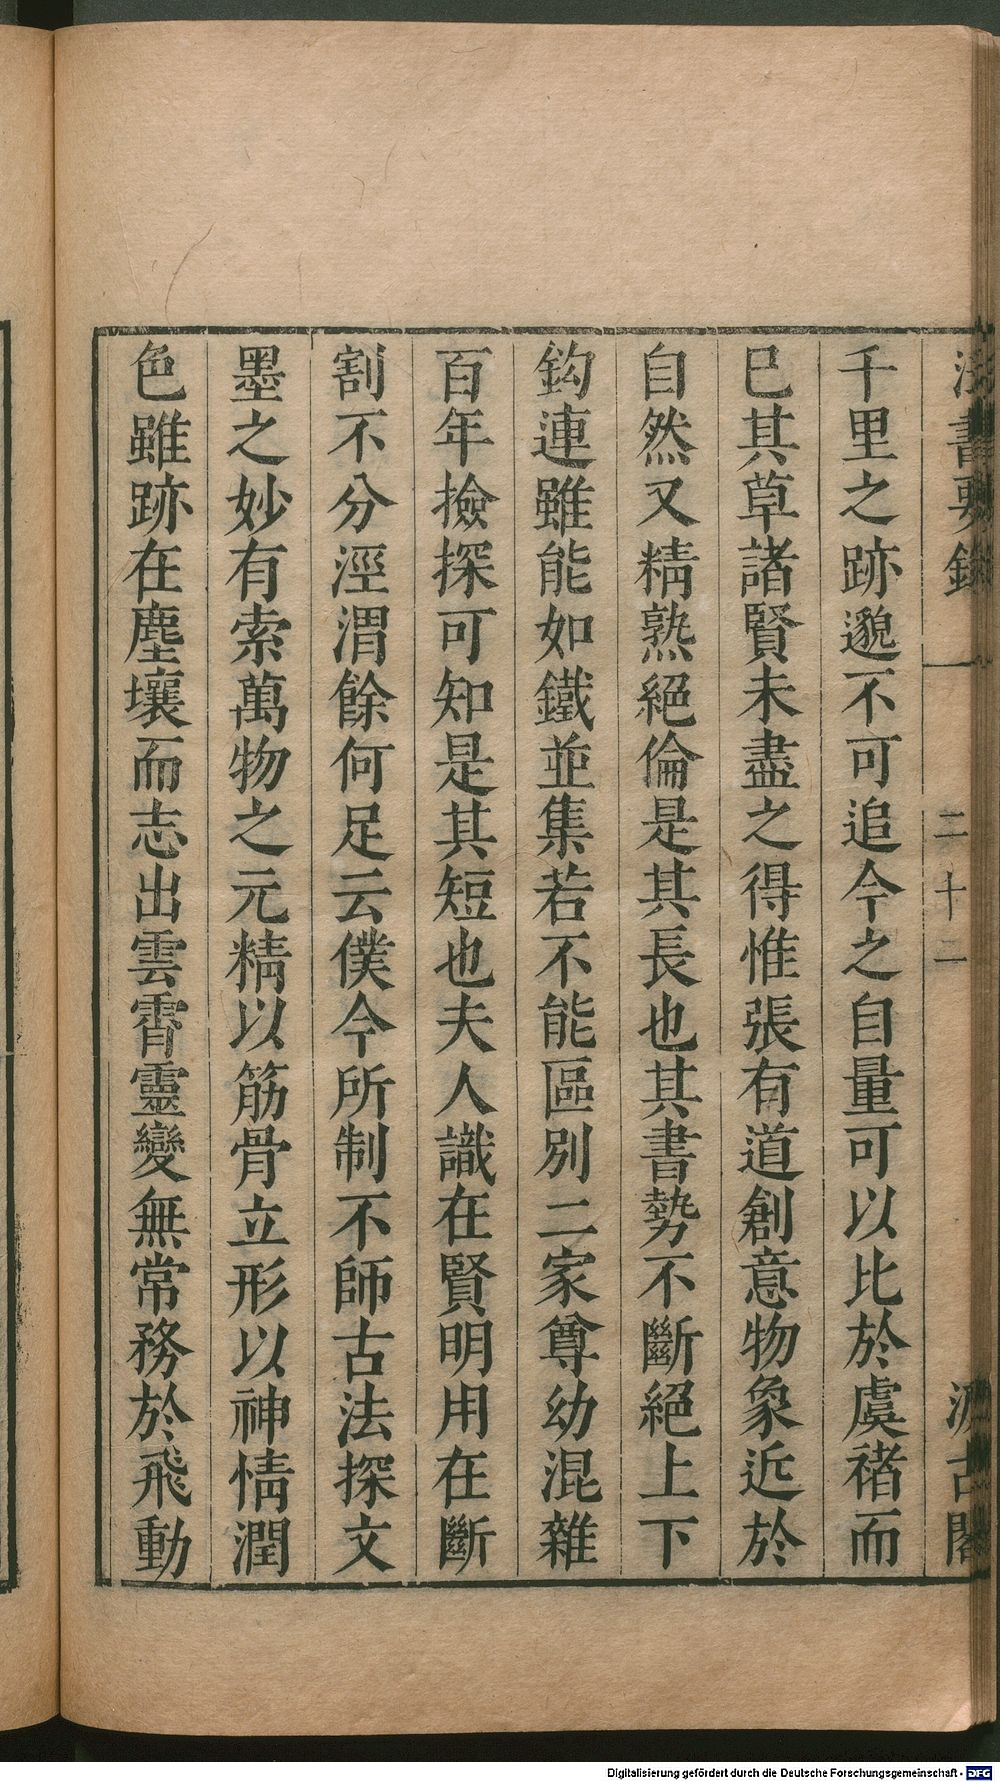 法書要錄
二十二
汲古閣
千里之跡邈不可追今之自量可以比於虞禇而
巳其草諸賢未盡之得惟張有道創意物象近於
自然又精熟絕倫是其長也其書勢不斷絕上下
鈎連雖能如鐵並集若不能區別二家尊幼混雜
百年撿探可知是其短也夫人識在賢明用在斷
割不分涇渭餘何足云僕今所制不師古法探文
墨之妙有索萬物之元精以筋骨立形以神情潤
色雖跡在塵壤而志出雲霄靈變無常務於飛動
Digitalisierung gefördert durch die Deutsche Forschungsgemeinschaft - DFG